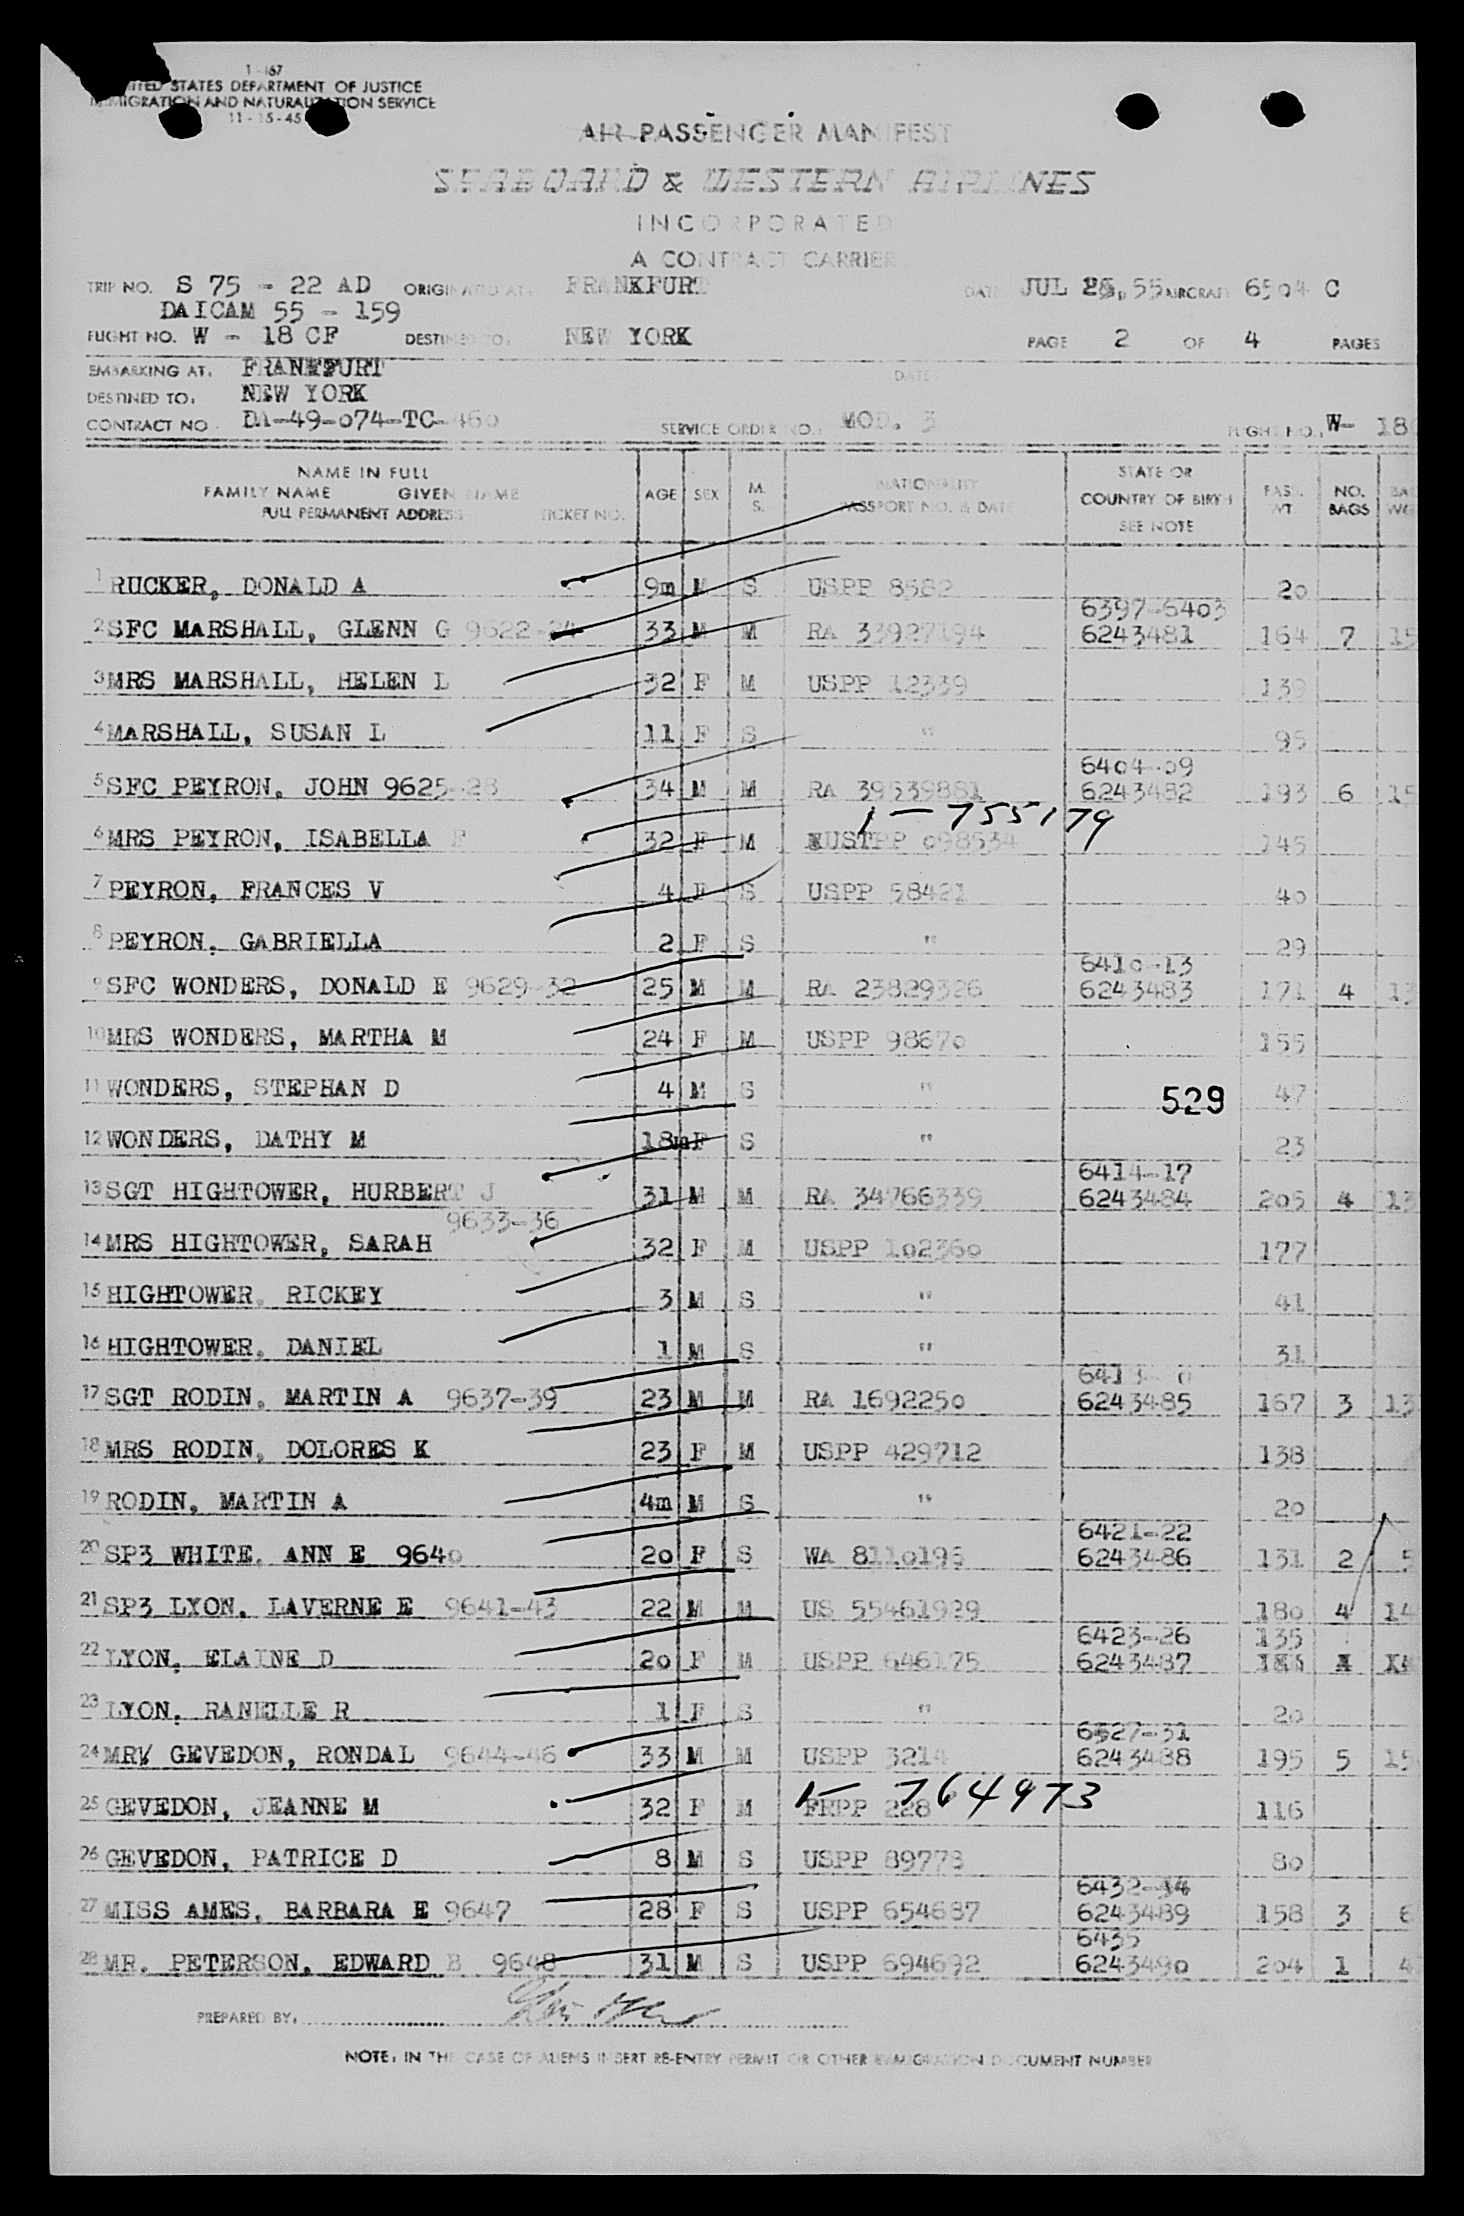 1-167
UNITED STATES DEPARTMENT OF JUSTICE
IMMIGRATION AND NATURALIZATION SERVICE
11-15-45
AIR PASSENGER MANIFEST
SEABOARD & WESTERN AIRLINES
INCORPORATED
A CONTRACT CARRIER
TRIP NO. S 75 - 22 AD ORIGINATED AT: FRANKFURT DATE JUL 55 AIRCRAFT 6504 C
DAICAM 55 - 159
FLIGHT NO. W - 18 CF DESTINED TO: NEW YORK PAGE 2 OF 4 PAGES
EMBARKING AT: FRANKFURT DATE:
DESTINED TO: NEW YORK
CONTRACT NO. DA-49-074-TC-460 SERVICE ORDER NO.: MOD. 3 FLIGHT NO. W- 18
NAME IN FULL
FAMILY NAME GIVEN NAME
FULL PERMANENT ADDRESS TICKET NO.
AGE SEX M. S.
NATIONALITY
PASSPORT NO. & DATE
STATE OR
COUNTRY OF BIRTH
SEE NOTE
PASS. WT NO. BAGS
1 RUCKER, DONALD A 9m M S USPP 8582 20
6397-6403
2 SFC MARSHALL, GLENN G 9622-24 33 M M RA 33927194 6243481 164 7 15
3 MRS MARSHALL, HELEN L 32 F M USPP 12339 139
4 MARSHALL, SUSAN L 11 F S " 95
6404-09
5 SFC PEYRON, JOHN 9625-28 34 M M RA 39539881 6243482 193 6 15
1-755179
6 MRS PEYRON, ISABELLA F 32 F M USTPP 098534 145
7 PEYRON, FRANCES V 4 F S USPP 58421 40
8 PEYRON, GABRIELLA 2 F S " 29
6410-13
9 SFC WONDERS, DONALD E 9629-32 25 M M RA 23829326 6243483 171 4 13
10 MRS WONDERS, MARTHA M 24 F M USPP 98670 155
11 WONDERS, STEPHAN D 4 M S " 529 47
12 WONDERS, DATHY M 18m F S " 23
6414-17
13 SGT HIGHTOWER, HURBERT J 31 M M RA 34766339 6243484 205 4 13
9633-36
14 MRS HIGHTOWER, SARAH 32 F M USPP 102360 177
15 HIGHTOWER, RICKEY 3 M S " 41
16 HIGHTOWER, DANIEL 1 M S " 31
17 SGT RODIN, MARTIN A 9637-39 23 M M RA 1692250 6243485 167 3 13
18 MRS RODIN, DOLORES K 23 F M USPP 429712 138
19 RODIN, MARTIN A 4m M S " 20
6421-22
20 SP3 WHITE, ANN E 9640 20 F S WA 8110196 6243486 131 2 5
21 SP3 LYON, LAVERNE E 9641-43 22 M M US 55461929 180 4 14
6423-26 135
22 LYON, ELAINE D 20 F M USPP 646175 6243487
23 LYON, RANELLE R 1 F S " 20
6527-31
24 MR GEVEDON, RONDAL 9644-46 33 M M USPP 3214 6243488 195 5 15
764973
25 GEVEDON, JEANNE M 32 F M FRPP 228 116
26 GEVEDON, PATRICE D 8 M S USPP 89778 80
6432-34
27 MISS AMES, BARBARA E 9647 28 F S USPP 654687 6243489 158 3 6
6435
28 MR. PETERSON, EDWARD B 9648 31 M S USPP 694692 6243490 204 1 4
PREPARED BY:
NOTE: IN THE CASE OF ALIENS INSERT RE-ENTRY PERMIT OR OTHER IMMIGRATION DOCUMENT NUMBER